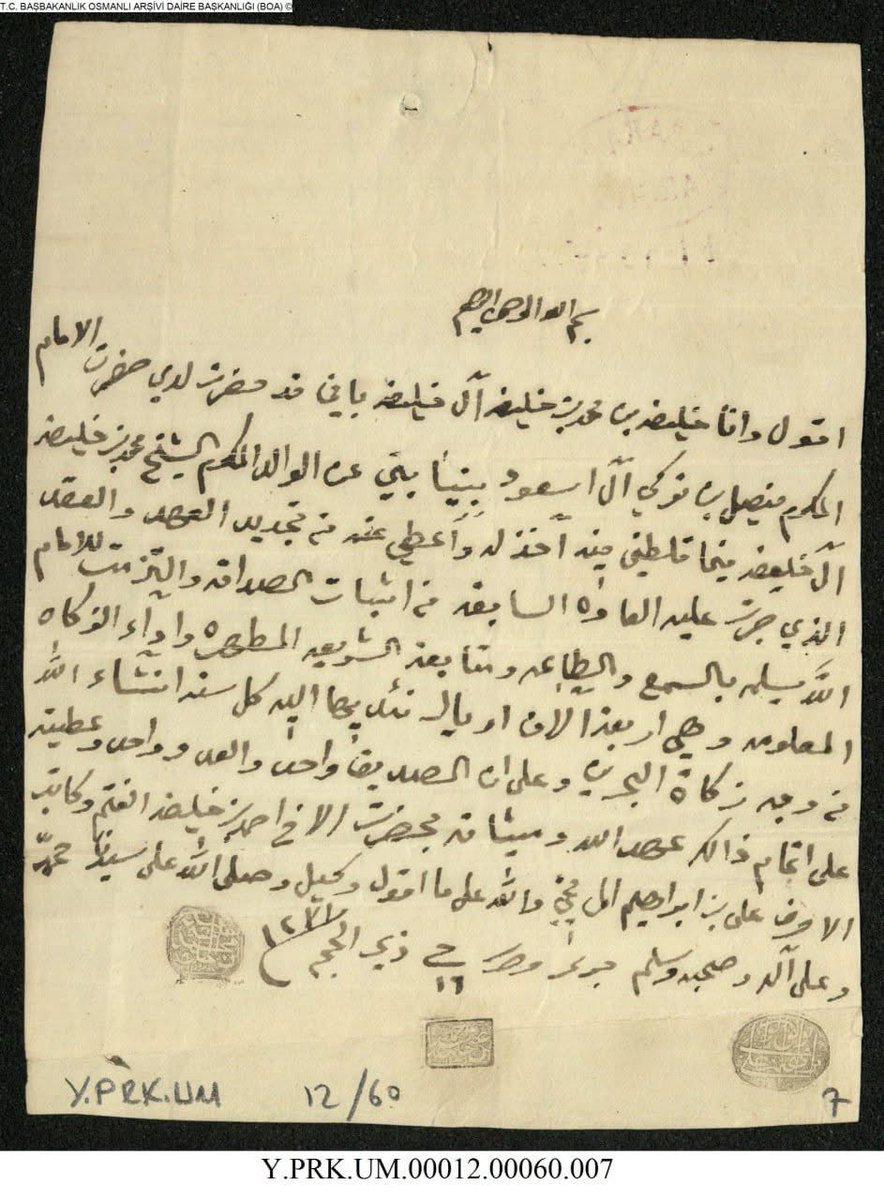 T.C. BAŞBAKANLIK OSMANLI ARŞİVİ DAİRE BAŞKANLIĞI (BOA) ©
بسم الله الرحمن الرحيم
اقول وانا خليفه بن محمد بن خليفه آل خليفه باني قد حضرت لدي حضرت الامام
المكرم فيصل بن تركي آل اسعود بيننا بيني عن الوالد المكرم الشيخ محمد بن خليفه
آل خليفه فيما قلطني فيه آخذ له وأعطي عنه من تجديد العهد والعقد
الذي جرت عليه العاده السابقه من اثبات الصداقه والتزمت للامام
الله يسلمه بالسمع والطاعه ومتابعة الشريعه المطهره واداء الزكاه
المعلومه وهي اربعة الاف اريال نئديها اليه كل سنه انشاء الله
من وجه زكاة البحرين وعلى ان الصديق واحد والعدو واحد وعطيته
على اتمام ذالك عهد الله وميثاقه بحضرت الاخ احمد بن خليفه الغتم وكاتبه
الاحرف علي بن ابراهيم والله على ما اقول وكيل وصلى الله على سيدنا محمد
وعلى آله وصحبه وسلم ١٦ ذي الحجه ١٢٧٧
Y.PRK.UM 12/60 7
Y.PRK.UM.00012.00060.007